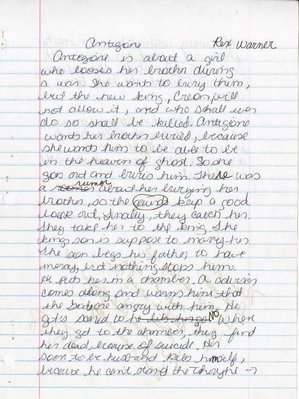 Antigone Rex Warner
Antigone is about a girl
who looses her brother during
a war. She wants to bury them,
but the new king, Creon, will
not allow it, and who shall ever
do so shall be killed. Antigone
wants her brother buried, because
she wants him to be able to be
in the heaven of ghost. So she
goes out and buries him. There was
a rumor about her burying her
brother, so the guard keep a good
look out, finally, they catch her.
They take her to the king. The
kings son is suppose to marry her.
The son begs his father, to have
mercy, but nothing stops him.
He puts her in a chamber. A advisor
comes along and warns him that
the gods are angry with him. He
gets scared so he lets her go. When
they got to the chamber, they find
her dead, because of suicide. Her
soon to be husband kills himself,
because he can't stand the thought →